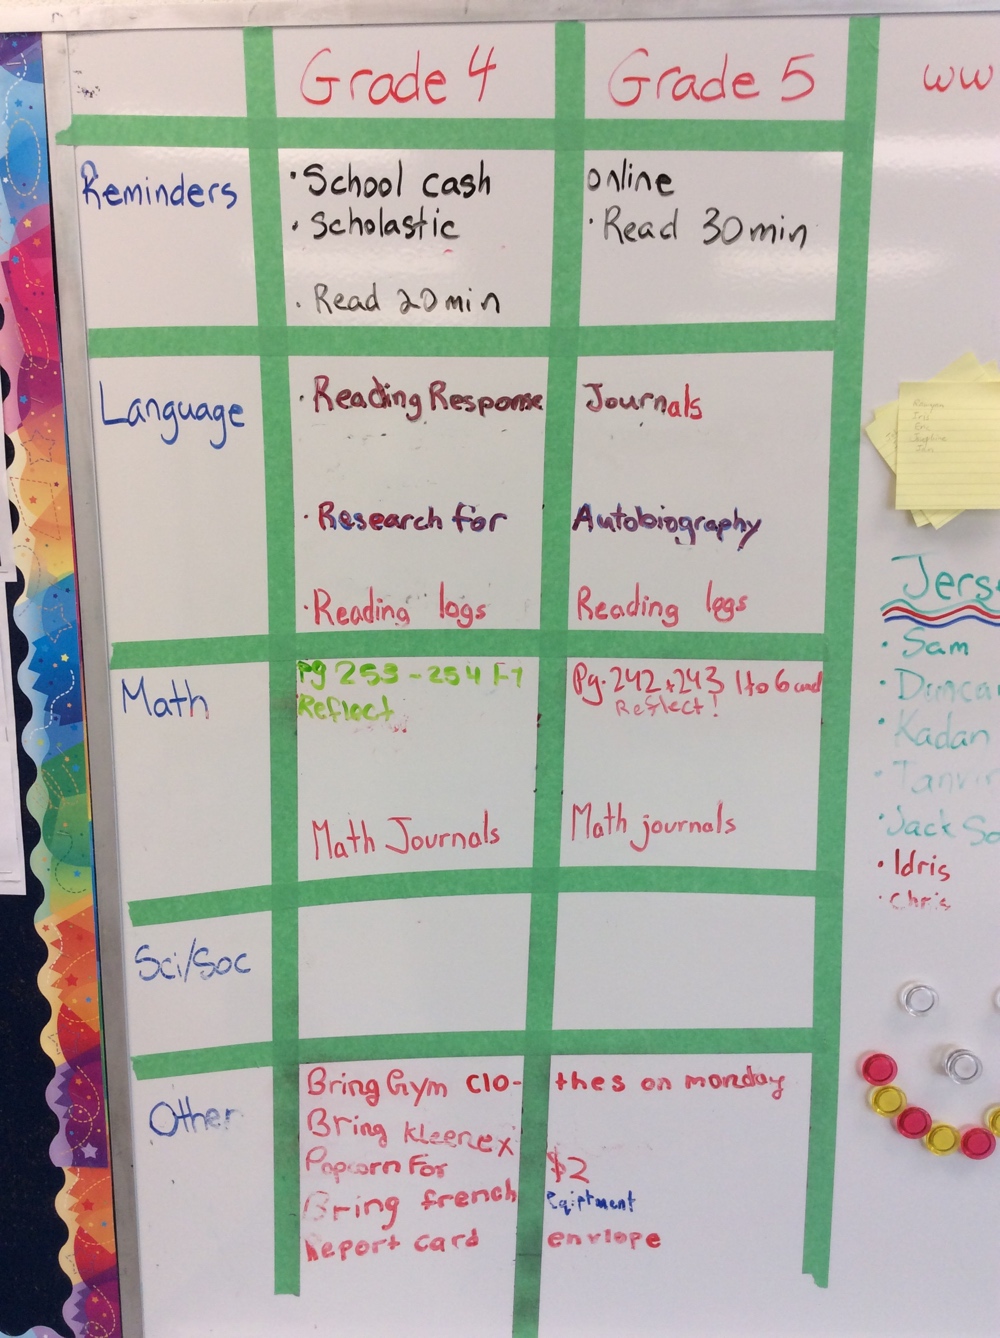 Grade 4 Grade 5 ww
Reminders
• School cash online
• Scholastic • Read 30 min
• Read 20 min
Language
• Reading Response Journals
• Research for Autobiography
• Reading logs Reading logs
Math
Pg 253 - 254 F-7 Pg. 242 + 243 1 to 6 and
Reflect Reflect!
Math Journals Math journals
Sci/Soc
Other
Bring Gym clo- thes on monday
Bring kleenex
Popcorn For $2
Bring french Eqiptment
Report card envlope
Jers
• Sam
• Duncan
• Kadan
• Tanvir
• Jack So
• Idris
• Chris